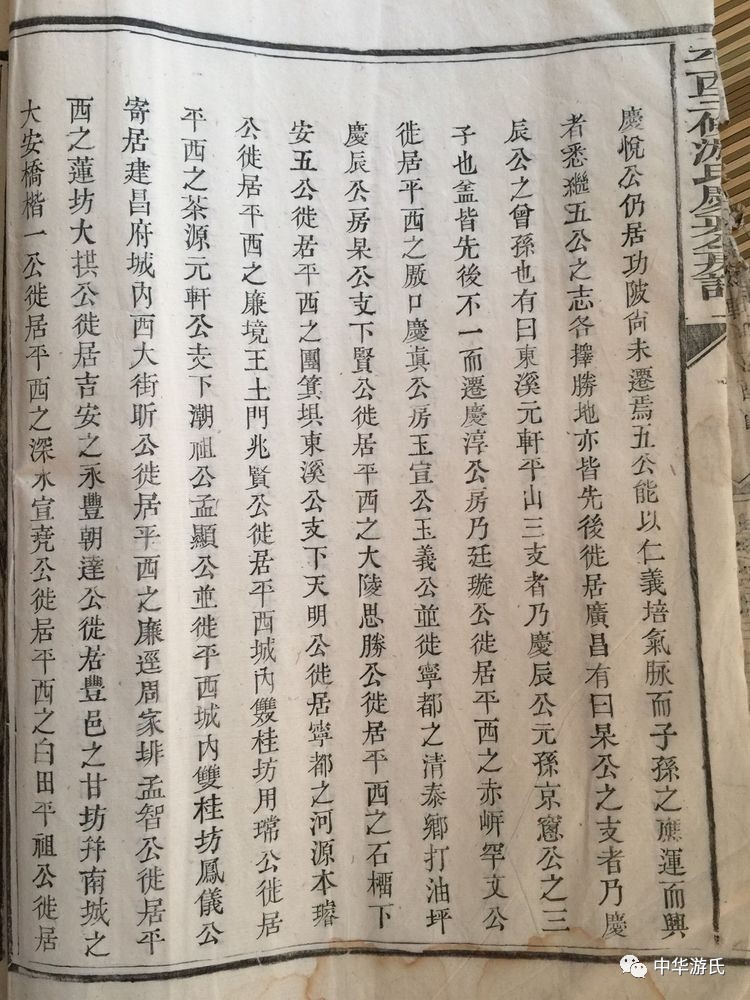 慶悅公仍居功陂尙未遷焉五公能以仁義培氣脉而子孫之應運而興
者悉繼五公之志各擇勝地亦皆先後徙居廣昌有曰杲公之支者乃慶
辰公之曾孫也有曰東溪元軒平山三支者乃慶辰公元孫京窻公之三
子也盖皆先後不一而遷慶淳公房乃廷璇公徙居平西之赤岍罕文公
徙居平西之厫口慶眞公房玉宣公玉義公並徙寧都之清泰鄉打油坪
慶辰公房杲公支下賢公徙居平西之大陵思勝公徙居平西之石橊下
安五公徙居平西之團箕垻東溪公支下天明公徙居寧都之河源本璿
公徙居平西之廉境王土門兆賢公徙居平西城內雙桂坊用瑺公徙居
平西之茶源元軒公支下潮祖公孟顯公並徙平西城內雙桂坊鳳儀公
寄居建昌府城內西大街昕公徙居平西之廉逕周家排孟智公徙居平
西之蓮坊大拱公徙居吉安之永豐朝達公徙居豐邑之甘坊幷南城之
大安橋楷一公徙居平西之深水宣堯公徙居平西之白田平祖公徙居
中华游氏